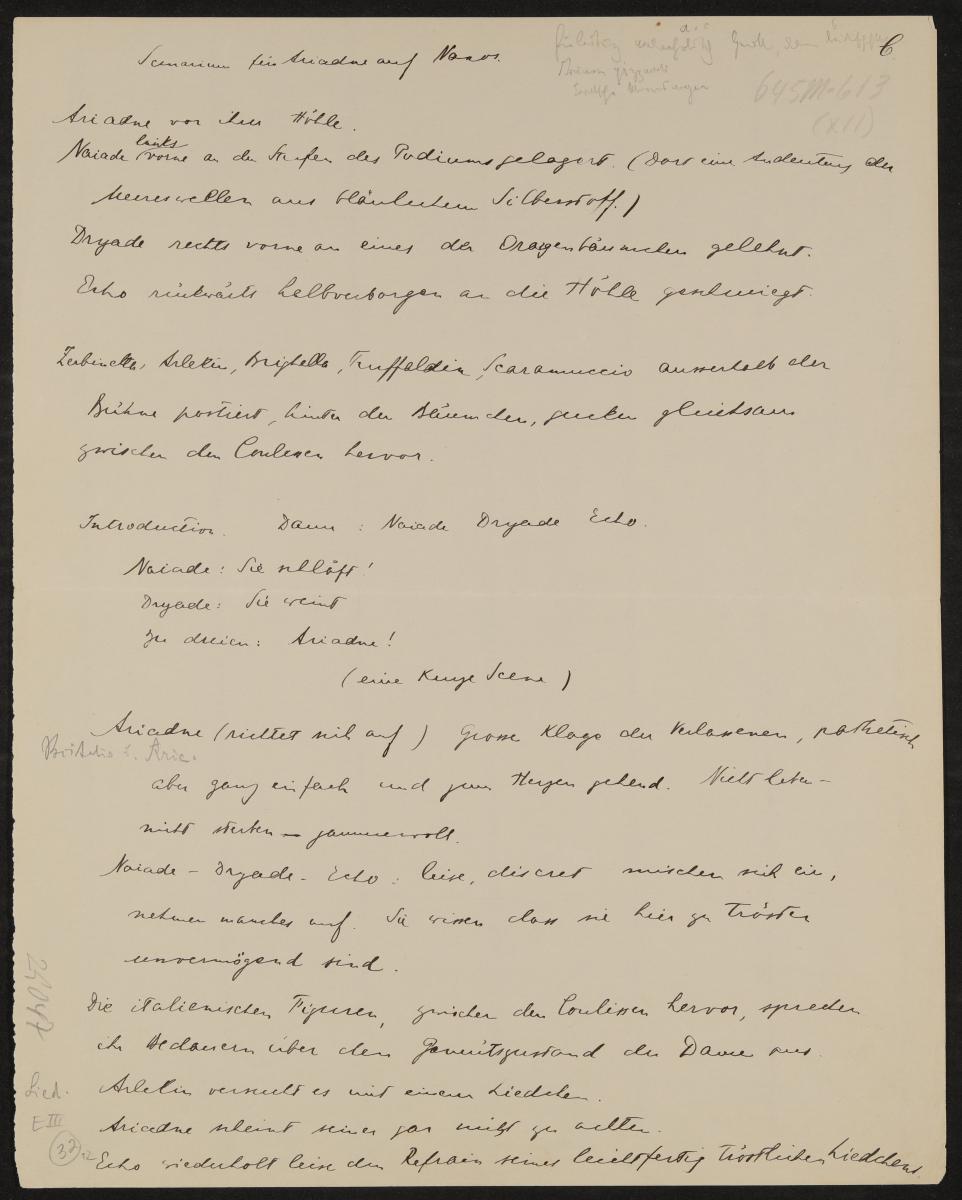 Scenarium für Ariadne auf Naxos.
C.
645M-613
(XII)
Ariadne vor ihrer Höhle.
links
Naiade vorne an den Stufen des Podiums gelagert. (Dort eine Andeutung der
Meereswellen aus bläulichem Silberstoff.)
Dryade rechts vorne an eines der Oragenbäumchen gelehnt.
Echo rückwärts halbverborgen an die Höhle geschmiegt.
Zerbinetta, Arlekin, Brighella, Truffaldin, Scaramuccio ausserhalb der
Bühne postiert, hinter den Bäumchen, gucken gleichsam
zwischen den Coulissen hervor.
Introduction. Dann: Naiade Dryade Echo.
Naiade: Sie schläft!
Dryade: Sie weint
Zu dreien: Ariadne!
(eine kurze Scene)
Ariadne (richtet sich auf) Grosse Klage der Verlassenen, pathetisch
aber ganz einfach und zum Herzen gehend. Nicht leben –
nicht sterben – jammervoll.
Naiade – Dryade – Echo: leise, discret mischen sich ein,
nehmen manches auf. Sie wissen dass sie hier zu trösten
unvermögend sind.
Die italienischen Figuren, zwischen den Coulissen hervor, sprechen
ihr Bedauern über den Gemütszustand der Dame aus.
Arlekin versucht es mit einem Liedchen.
Ariadne scheint seiner gar nicht zu achten.
Echo wiederholt leise den Refrain seines leichtfertig tröstlichen Liedchens.
24047
Lied.
E III
32